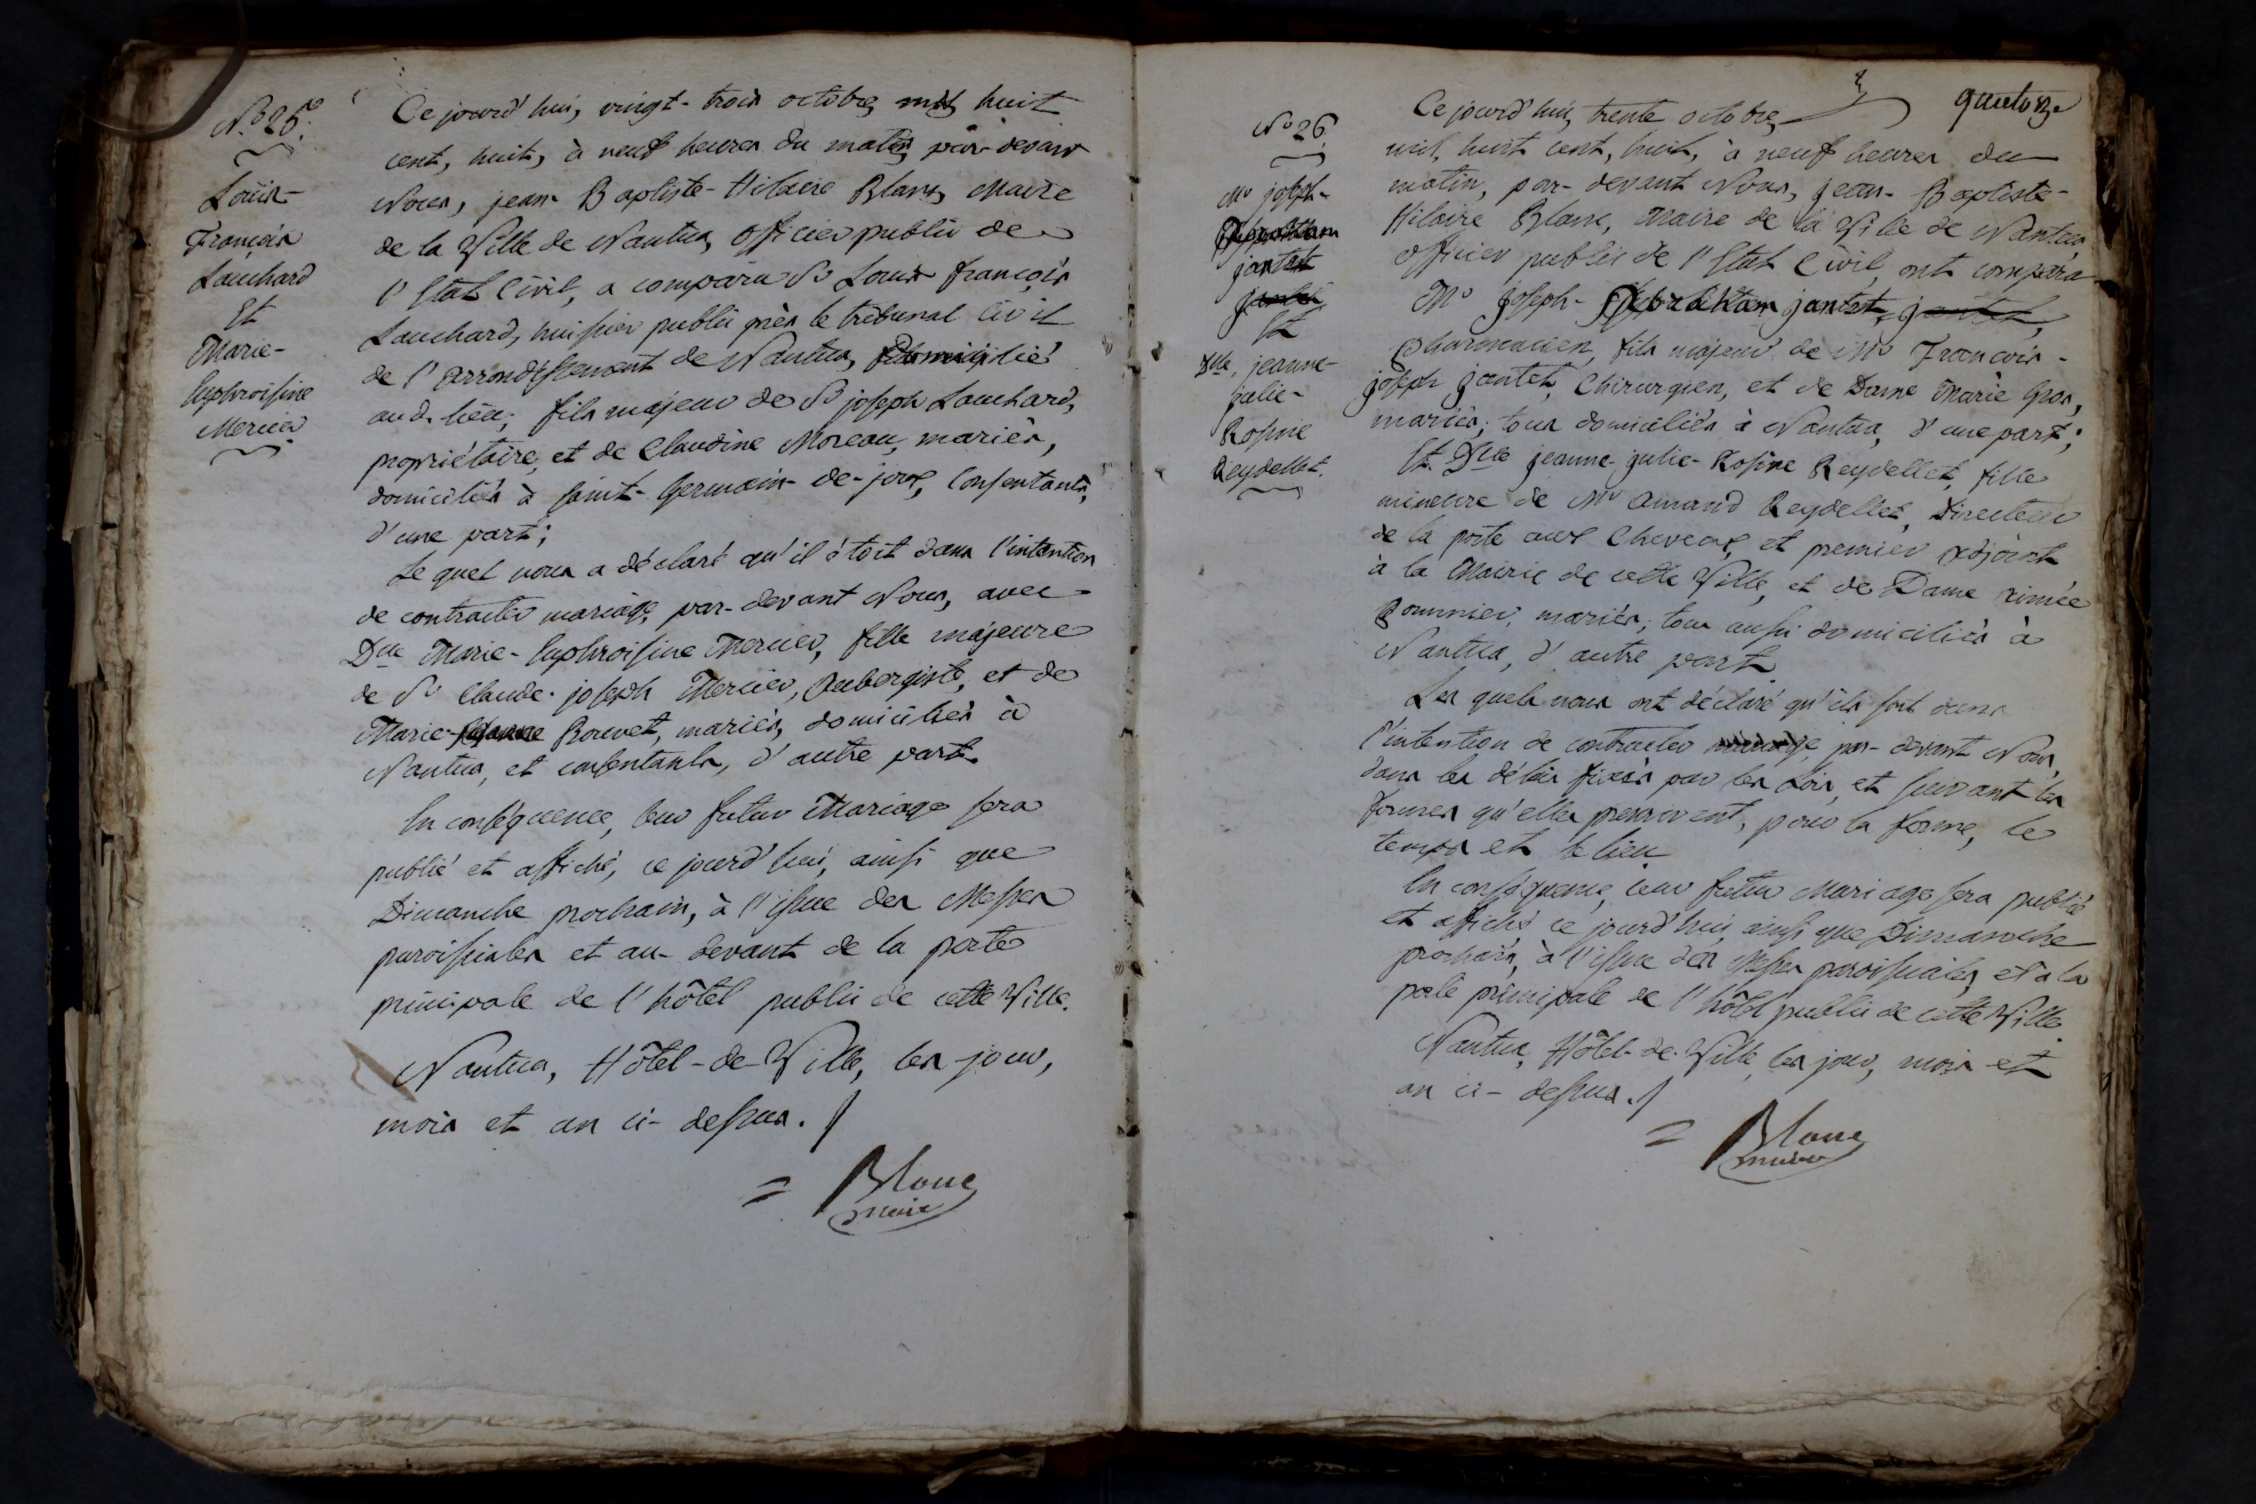 N.o 25.e
Louis-
François
Lauchard
Et
Marie-
Euphroisine
Mercier
Ce jourd'hui, vingt-trois octobre, mil huit
cent, huit, à neuf heures du matin, par-devant
Nous, jean-Baptiste-Hilaire Blanc, Maire
de la Ville de Nantua, Officier public de
l'Etat Civil, a comparu Sr Louis françois
Lauchard, huissier public près le tribunal Civil
de l'arrondissement de Nantua, Domicilié
aud. lieu; fils majeur de Sr joseph Lauchard,
propriétaire, et de Claudine Moreau, mariés,
domiciliés à saint-Germain-de-joux, Consentants,
d'une part;
Le quel nous a déclaré qu'il étoit dans l'intention
de contracter mariage, par-devant Nous, avec
Dlle Marie-Euphroisine Mercier, fille majeure
de Sr Claude-joseph Mercier, Aubergiste, et de
Marie- Bouvet, mariés, domiciliés à
Nantua, et consentants, d'autre part.
En conséquence, leur futur Mariage sera
publié et affiché, ce jourd'hui, ainsi que
Dimanche prochain, à l'issue des Messes
paroissiales et au-devant de la porte
principale de l'hôtel public de cette Ville.
Nantua, Hôtel-de-Ville, les jour,
mois et an ci-dessus./
= Blanc
maire
quatorze
No 26.
Mr joseph-
jantet
Et
Dlle, jeanne-
julie-
Rosine
Reydellet.
Ce jourd'hui, trente octobre,
mil, huit cent, huit, à neuf heures du
matin, par-devant Nous, Jean-Baptiste-
Hilaire Blanc, Maire de la Ville de Nantua,
officier public de l'Etat Civil, ont comparu
Mr joseph- jantet,
pharmacien, fils majeur de Mr François-
joseph jantet, Chirurgien, et de Dame Marie Gros,
mariés; tous domiciliés à Nantua, d'une part;
Et Dlle jeanne-julie-Rosine Reydellet, fille
mineure de Mr Amand Reydellet, Directeur
de la poste aux Chevaux, et premier adjoint
à la Mairie de cette Ville, et de Dame aimée
mariés; tous aussi domiciliés à
Nantua, d'autre part
Les quels nous ont déclaré qu'ils sont dans
l'intention de contracter mariage, par-devant Nous,
dans les délais fixés par les Lois, et suivant les
formes qu'elles prescrivent, pour la forme, le
temps et le lieu
En conséquence, leur futur Mariage sera publié
et affiché ce jourd'hui ainsi que Dimanche
prochain, à l'issue des Messes paroissiales, et à la
porte principale de l'hôtel public de cette Ville.
Nantua, Hôtel-de-Ville, les jour, mois et
an ci-dessus./
= Blanc
maire